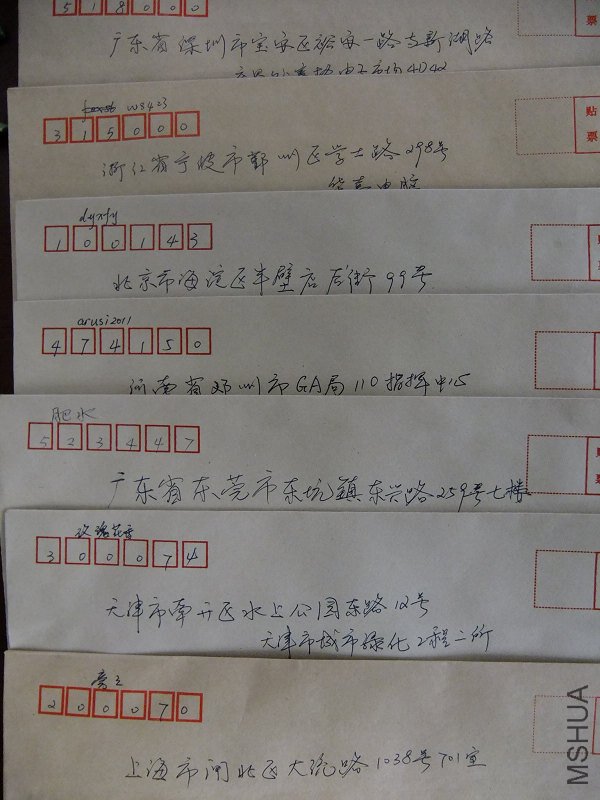 518000
广东省深圳市宝安区裕安一路与新湖路
贴
票
W8423
315000
浙江省宁波市鄞州区学士路298号
贴
票
dyxfy
100143
北京市海淀区半壁店后街99号
arusi2011
474150
河南省邓州市GA局110指挥中心
肥水
523447
广东省东莞市东坑鎮东兴路259号七楼
300074
天津市南开区水上公园东路12号
天津市城市绿化工程二所
200070
上海市闸北区大统路1038号701室
MSHUA